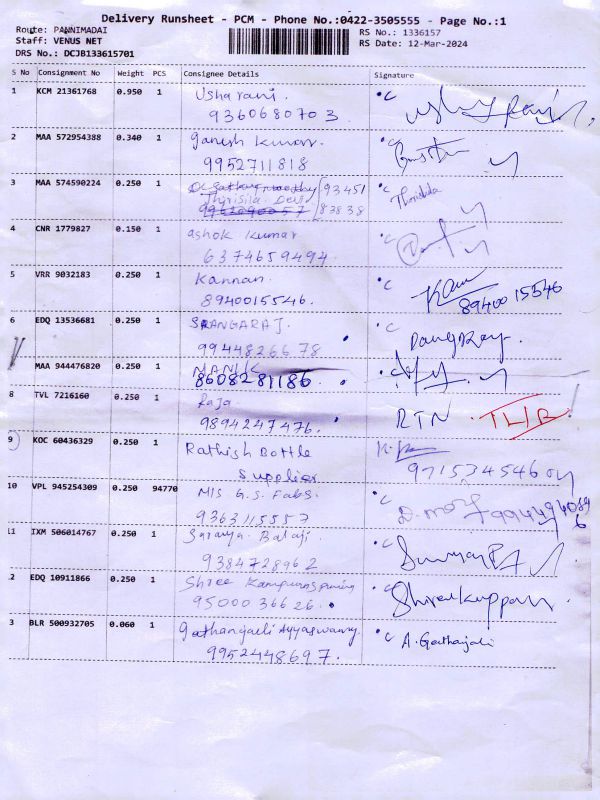 Delivery Runsheet - PCM - Phone No.:0422-3505555 - Page No.:1
Route: PANNIMADAI
RS No.: 1336157
Staff: VENUS NET
RS Date: 12-Mar-2024
DRS No.: DCJB133615701
S No Consignment No Weight PCS Consignee Details Signature
1 KCM 21361768 0.950 1 Usha rani.
9360680703
2 MAA 572954388 0.340 1 Ganesh Kumar.
9952711818
3 MAA 574590224 0.250 1 93451
Thirisila Devi 83838
Thirisila
4 CNR 1779827 0.150 1 ashok kumar
6374659494.
5 VRR 9032183 0.250 1 Kannan.
8940015546.
8940015546
6 EDQ 13536681 0.250 1 SRANGARAJ.
9944826678
MAA 944476820 0.250 1 MANIK
8608281186.
8 TVL 7216160 0.250 1 Raja
9894247476.
RTN
9 KOC 60436329 0.250 1 Rathish Bottle
Supplier
9715345460
10 VPL 945254309 0.250 94770 M/S G.S. Fabs.
9363115557
11 IXM 506014767 0.250 1 Saranya Balaji
9384728962
2 EDQ 10911866 0.250 1 Shree
9500036626.
3 BLR 500932705 0.060 1 Gathangali Ayyaswamy
9952448697.
A. Gathajali